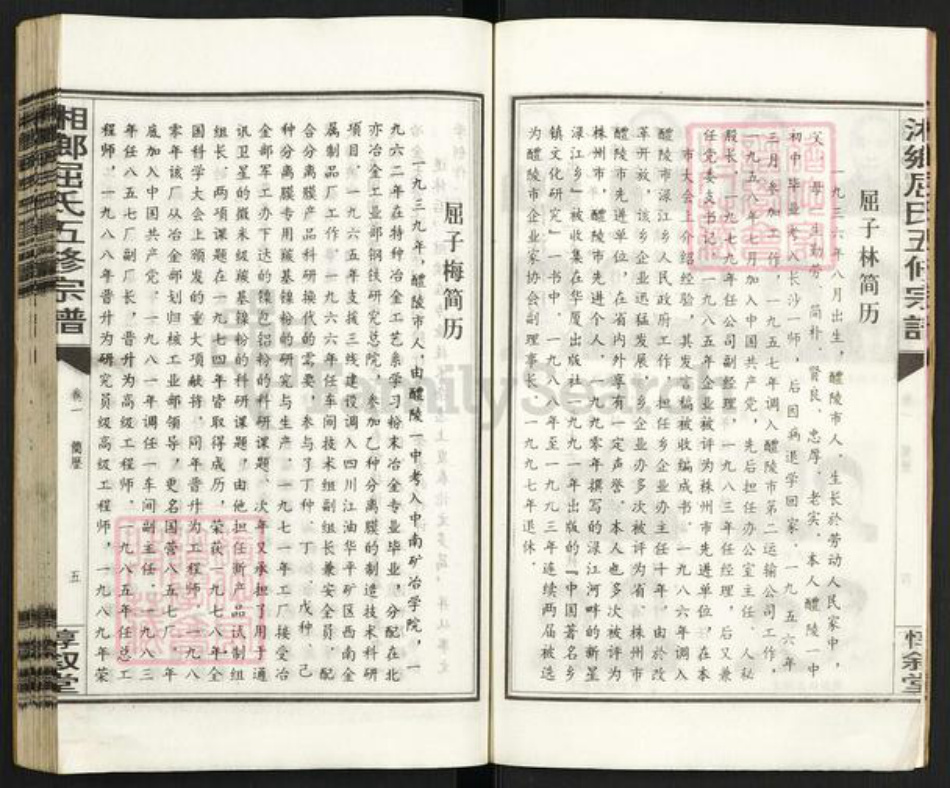 屈子林简历
一九三六年八月出生，醴陵市人。生长於劳动人民家中，
父母一生勤劳、简朴、贤良、忠厚、老实。本人醴陵一中
初中毕业考入长沙一师，后因病退学回家。一九五六年
三月参加工作，一九五七年调入醴陵市第二运输公司工作，
一九五八年七月加入中国共产党，先后担任办公室主任、人秘
股长，一九七九年任公司副经理，一九八三年任经理，后又兼
任党委支书记，一九八五年企业被评为株州市先进单位，在本
市大会上介绍经验，其发言稿被收编成书。一九八六年调入
醴陵市渌江乡人民政府工作，担任乡企业办主任十年，由於改
革开放，该乡企业迅猛发展，乡企业办多次被评为省、株州市
醴陵市先进单位，在省内外享有一定声誉。本人也多次被评为
株州市，醴陵市先进个人，一九九零年撰写的渌江河畔的新星
渌江乡"被收集在华厦出版社一九九一年出版的"中国著名乡
镇文化研究"一书中。一九八八年至一九九三年连续两届被选
为醴陵市企业家协会副理事长，一九九七年退休。
湘鄉屈氏五修宗譜
卷一 简歷
五
惇叙堂
屈子梅简历
一九三九年，醴陵市人，由醴陵一中考入中南矿冶学院，一
九六二年在特种冶金工艺系学习粉末冶金专业毕业，分配在北
亦冶金工业部钢铁研究总院，参加乙种分离膜的制造技术科研
项目。一九六五年支援三线建设调入四川江油华平矿区西南金
属制品厂工作，一九六六年任车间技术组副组长兼安全员，配
合分离膜产品科研换代的需要，参与了丁种、丁一、戊种、己
种分离膜专用羰基镍粉的研究与生产。一九七一年工厂接受冶
金部军工办下达的镍包铝粉的科研课题，次年又承担了用于通
讯卫星的微米级羰基镍粉的科研课题，由他担任新产品试制组
组长，两项课题在一九七四年皆取得成历，荣获一九七八年全
国科学大会上颁发的重大项献将，同年晋升为工程师，一九八
零年该厂从冶金部划归核工业部领导，更名国营八五七厂，年
底加入中国共产党。一九八一年调任一车间副主任，一九八三
年任八五七厂副厂长，晋升为高级工程师。一九八五年任总工
程师，一九八八年晋升为研究员级高级工程师，一九八九年荣